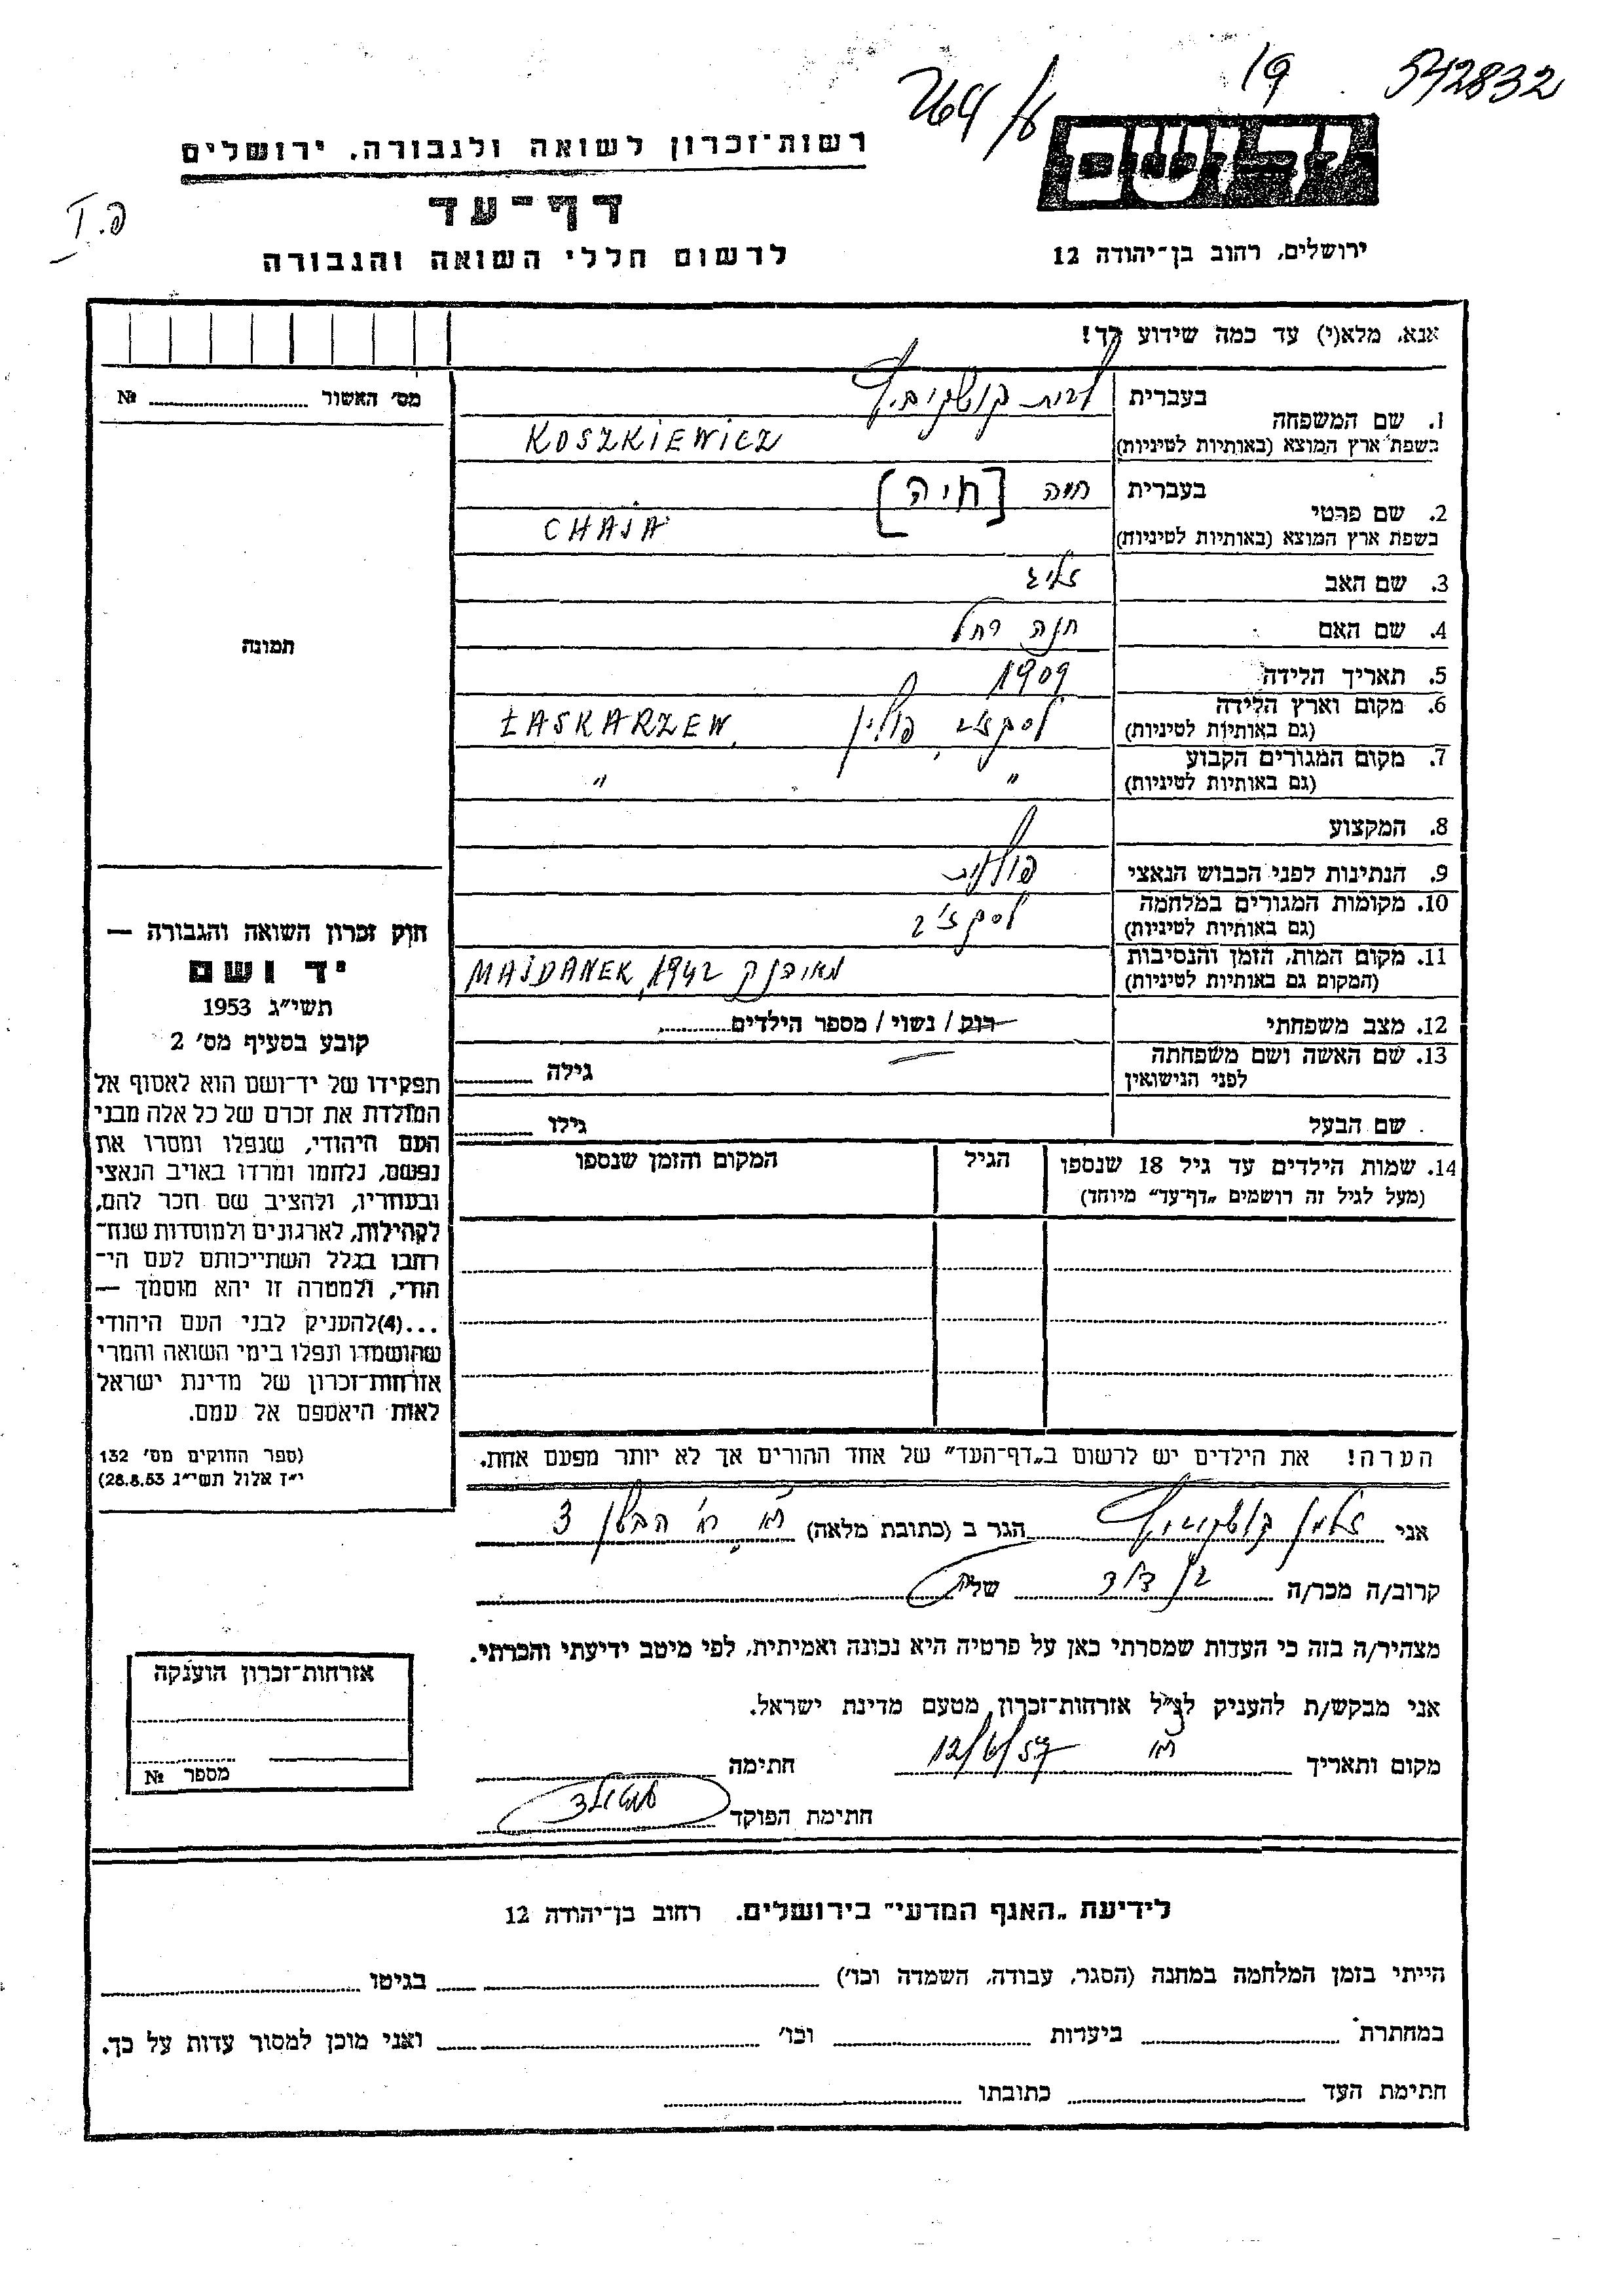 542832
19
764/8
יד ושם
רשות־זכרון לשואה ולגבורה, ירושלים
דף־עד
פ.I
לרשום חללי השואה והגבורה
ירושלים, רחוב בן־יהודה 12
אנא, מלא(י) עד כמה שידוע לך!
מס' האשור № 
1. שם המשפחה
בעברית לבית קושקביץ
בשפת ארץ המוצא (באותיות לטיניות) KOSZKIEWICZ
2. שם פרטי
בעברית חיה [חיה]
בשפת ארץ המוצא (באותיות לטיניות) CHAJA
3. שם האב זליג
4. שם האם חנה רחל
5. תאריך הלידה 1909
6. מקום וארץ הלידה (גם באותיות לטיניות) לסקז'ב, פולין ŁASKARZEW
7. מקום המגורים הקבוע (גם באותיות לטיניות) " "
8. המקצוע
9. הנתינות לפני הכבוש הנאצי פולנית
10. מקומות המגורים במלחמה (גם באותיות לטיניות) לסקז'ב
11. מקום המות, הזמן והנסיבות (המקום גם באותיות לטיניות) מאידנק MAJDANEK, 1942
12. מצב משפחתי רוק / נשוי / מספר הילדים
13. שם האשה ושם משפחתה לפני הנישואין גילה
שם הבעל גילו
14. שמות הילדים עד גיל 18 שנספו הגיל המקום והזמן שנספו
(מעל לגיל זה רושמים „דף־עד” מיוחד)
תמונה
חוק זכרון השואה והגבורה —
יד ושם
תשי״ג 1953
קובע בסעיף מס' 2
תפקידו של יד־ושם הוא לאסוף אל
המולדת את זכרם של כל אלה מבני
העם היהודי, שנפלו ומסרו את
נפשם, נלחמו ומרדו באויב הנאצי
ובעוזריו, ולהציב שם וזכר להם,
לקהילות, לארגונים ולמוסדות שנח־
רבו בגלל השתייכותם לעם הי־
הודי, ולמטרה זו יהא מוסמך —
...(4) להעניק לבני העם היהודי
שהושמדו ונפלו בימי השואה והמרי
אזרחות־זכרון של מדינת ישראל
לאות היאספם אל עמם.
(ספר החוקים מס' 132
י״ז אלול תשי״ג 28.8.53)
הערה! את הילדים יש לרשום ב„דף־העד” של אחד ההורים אך לא יותר מפעם אחת.
אני זלמן קושקביץ הגר ב (כתובת מלאה) 3
קרוב/ה מכר/ה בן דוד של
מצהיר/ה בזה כי העדות שמסרתי כאן על פרטיה היא נכונה ואמיתית, לפי מיטב ידיעתי והכרתי.
אני מבקש/ת להעניק לנ״ל אזרחות־זכרון מטעם מדינת ישראל.
מקום ותאריך 12/6/57 חתימה
חתימת הפוקד
אזרחות־זכרון הוענקה
מספר №
לידיעת „האגף המדעי” בירושלים, רחוב בן־יהודה 12
הייתי בזמן המלחמה במחנה (הסגר, עבודה, השמדה וכו') בגיטו
במחתרת ביערות וכו' ואני מוכן למסור עדות על כך.
חתימת העד כתובתו